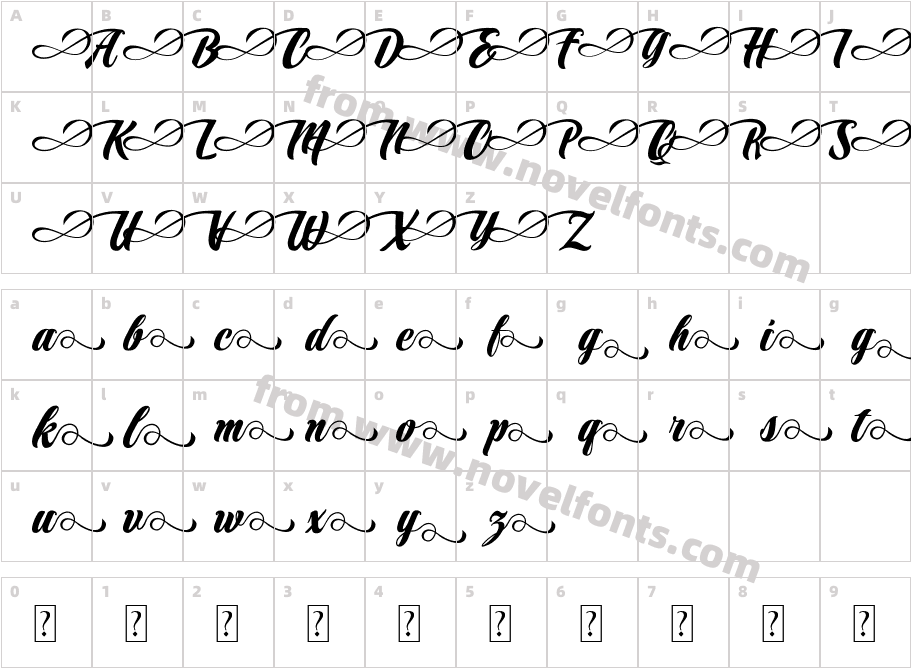 A B C D E F G H I J
A B C D E F G H I
from www.novelfonts.com
K L M N O P Q R S T
K L M N O P Q R S
U V W X Y Z
U V W X Y Z
a b c d e f g h i g
a b c d e f g h i g
from www.novelfonts.com
k l m n o p q r s t
k l m n o p q r s t
u v w x y z
u v w x y z
0 1 2 3 4 5 6 7 8 9
? ? ? ? ? ? ? ? ? ?